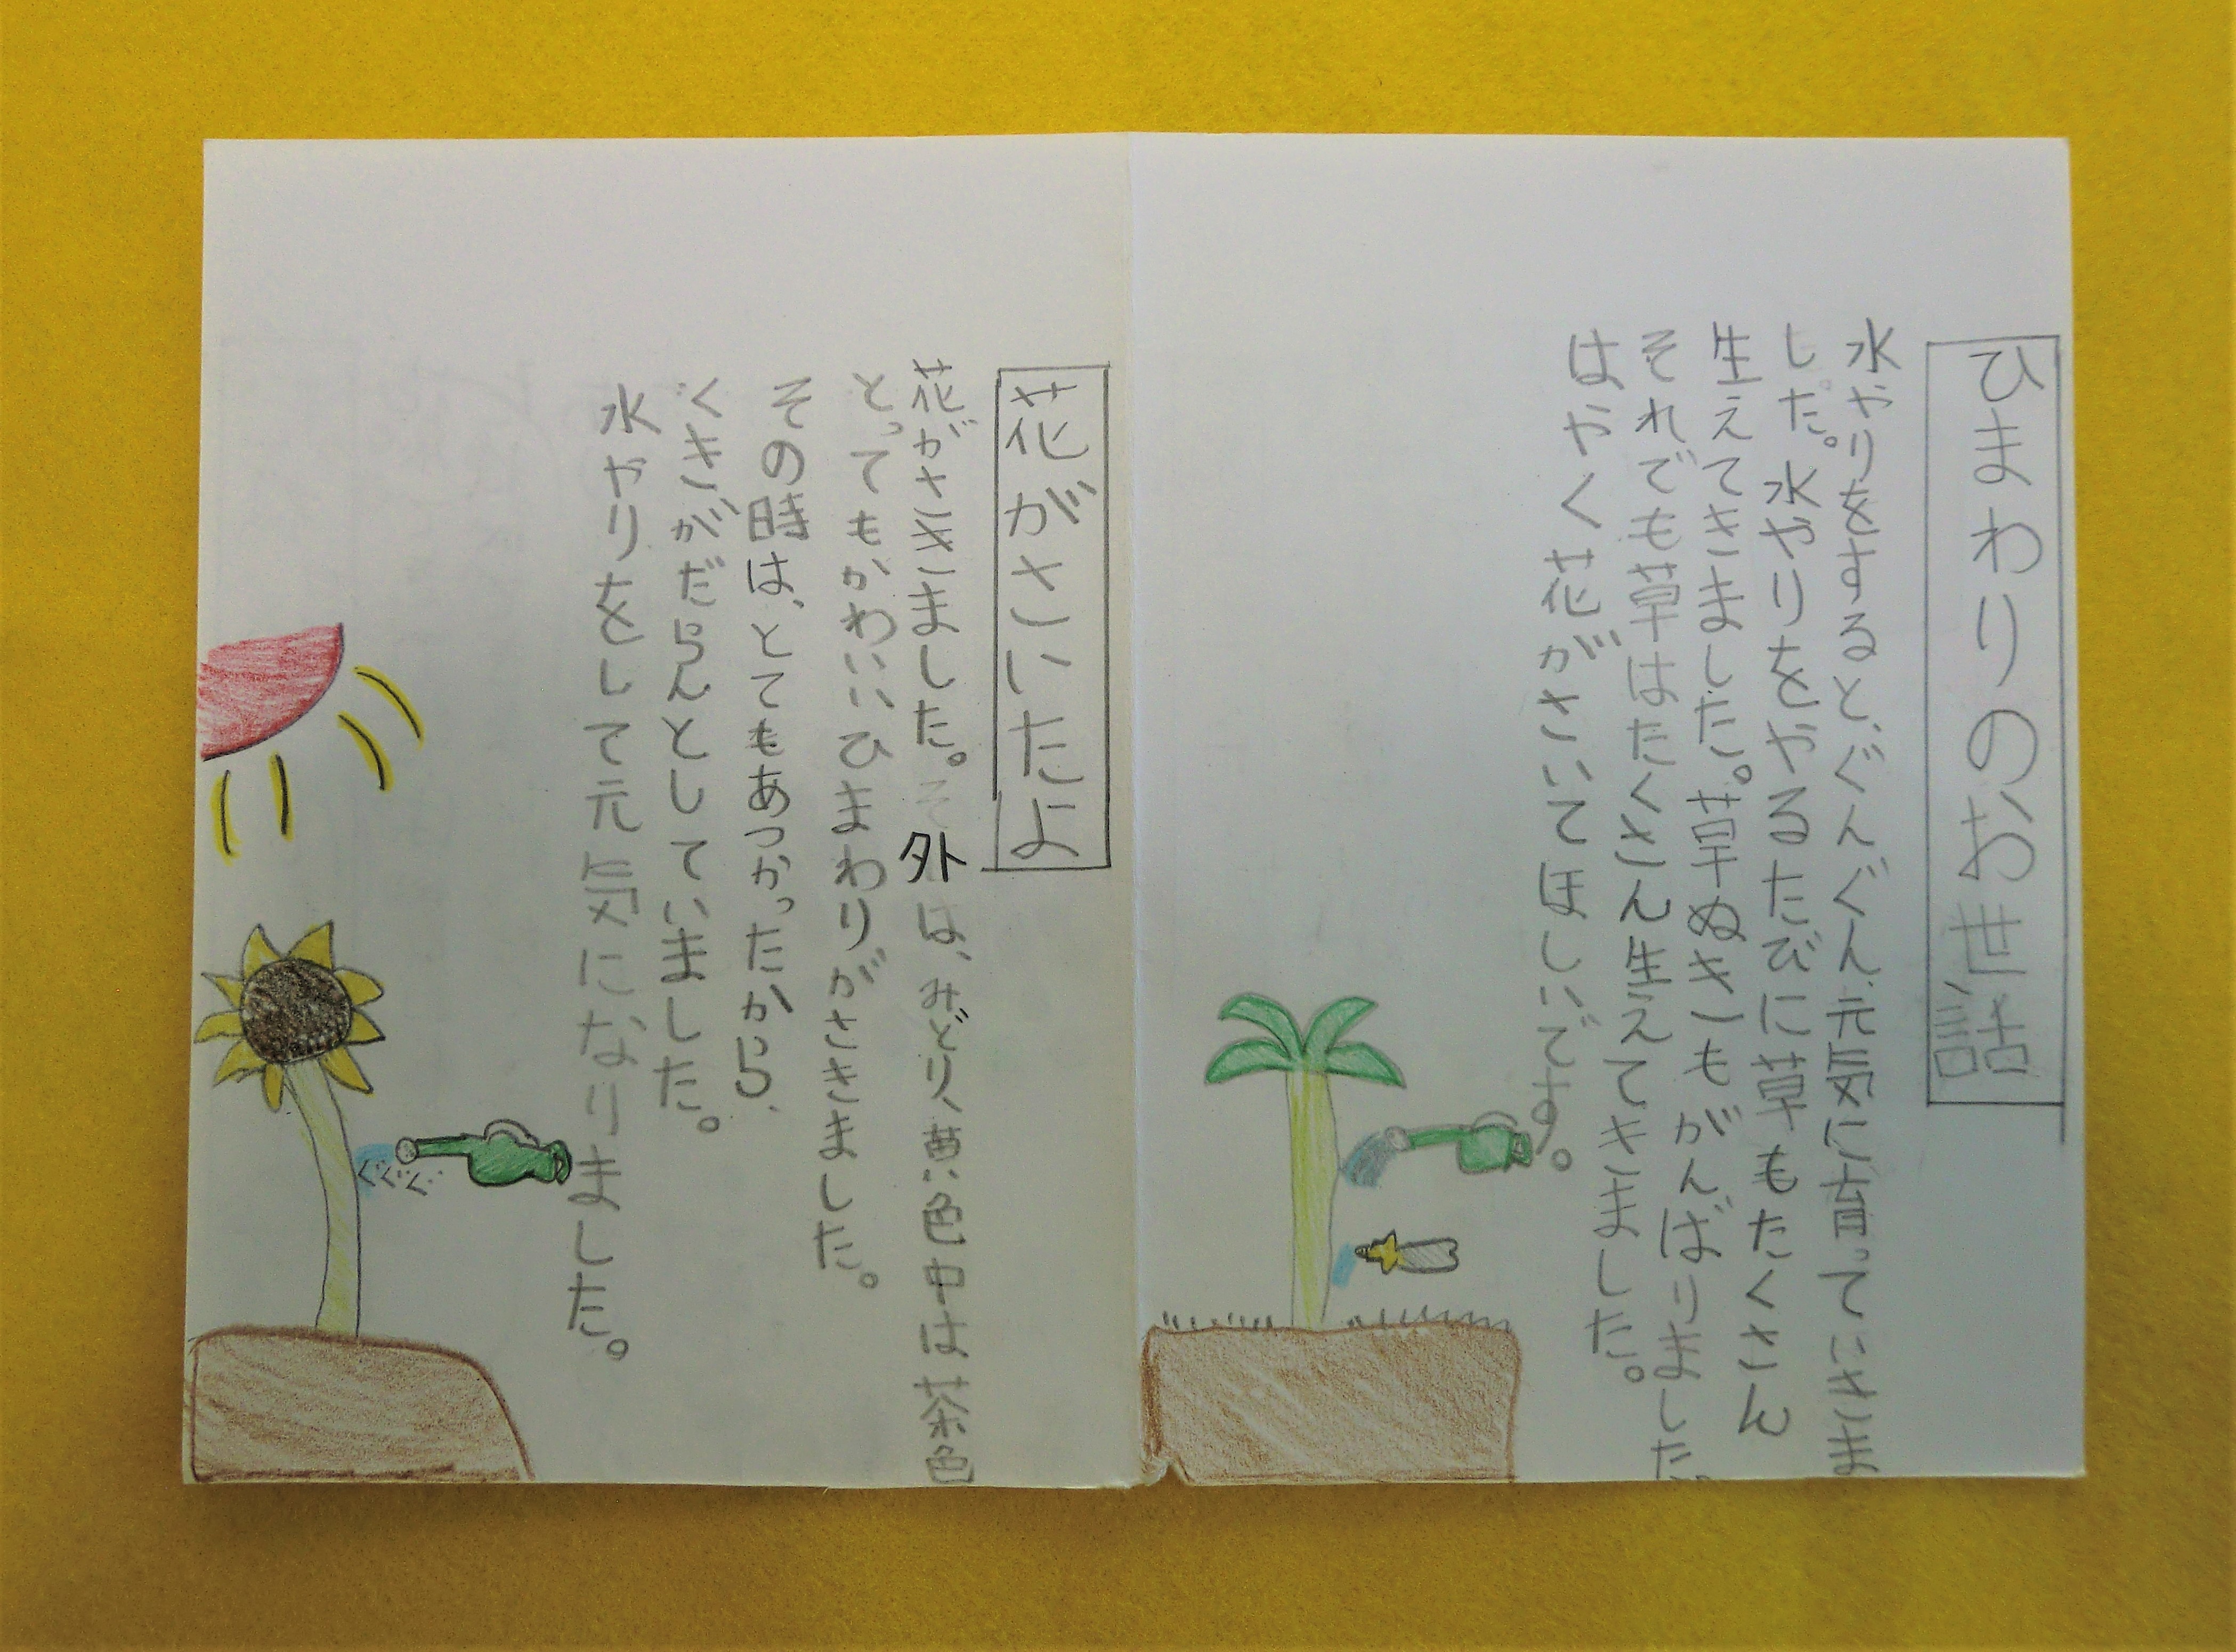 ひまわりのお世話
水やりをすると、ぐんぐん、元気に育っていきま
した。水やりをやるたびに草もたくさん
生えてきました。草ぬきもがんばりました
それでも草はたくさん生えてきました。
はやく花がさいてほしいです。
花がさいたよ
花がさきました。外は、みどり、黄色中は茶色
とってもかわいいひまわりがささきました。
その時は、とてもあつかったから、
くきがだらんとしていました。
水やりをして元気になりました。